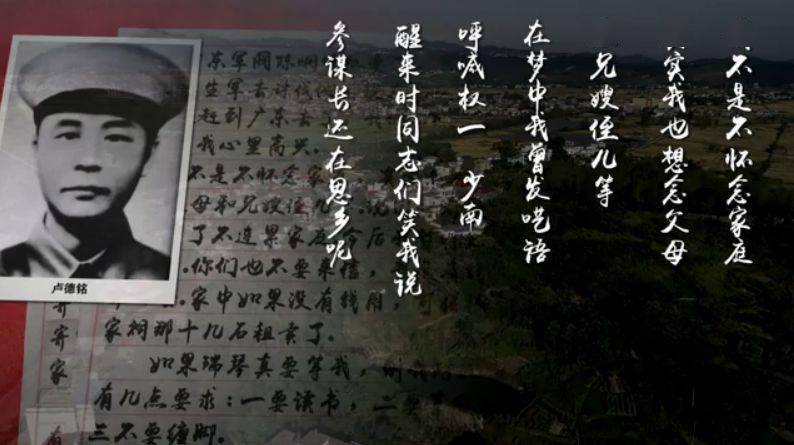 不是不怀念家庭
实我也想念父母
兄嫂侄儿等
在梦中我曾发呓语
呼喊权一 少南
醒来时同志们笑我说
参谋长还在思乡呢
卢德铭
东军阀陈炯
生军去讨伐
赶到广东去
我心里高兴。
不是不怀念家
母和兄嫂侄儿 说
了不连累家庭今后
你们也不要来信，
家中如果没有钱用，可
家祠那十几石租卖了。
如果瑞琴真要等我，
有几点要求：一要读书，二要
三不要缠脚。
寄家